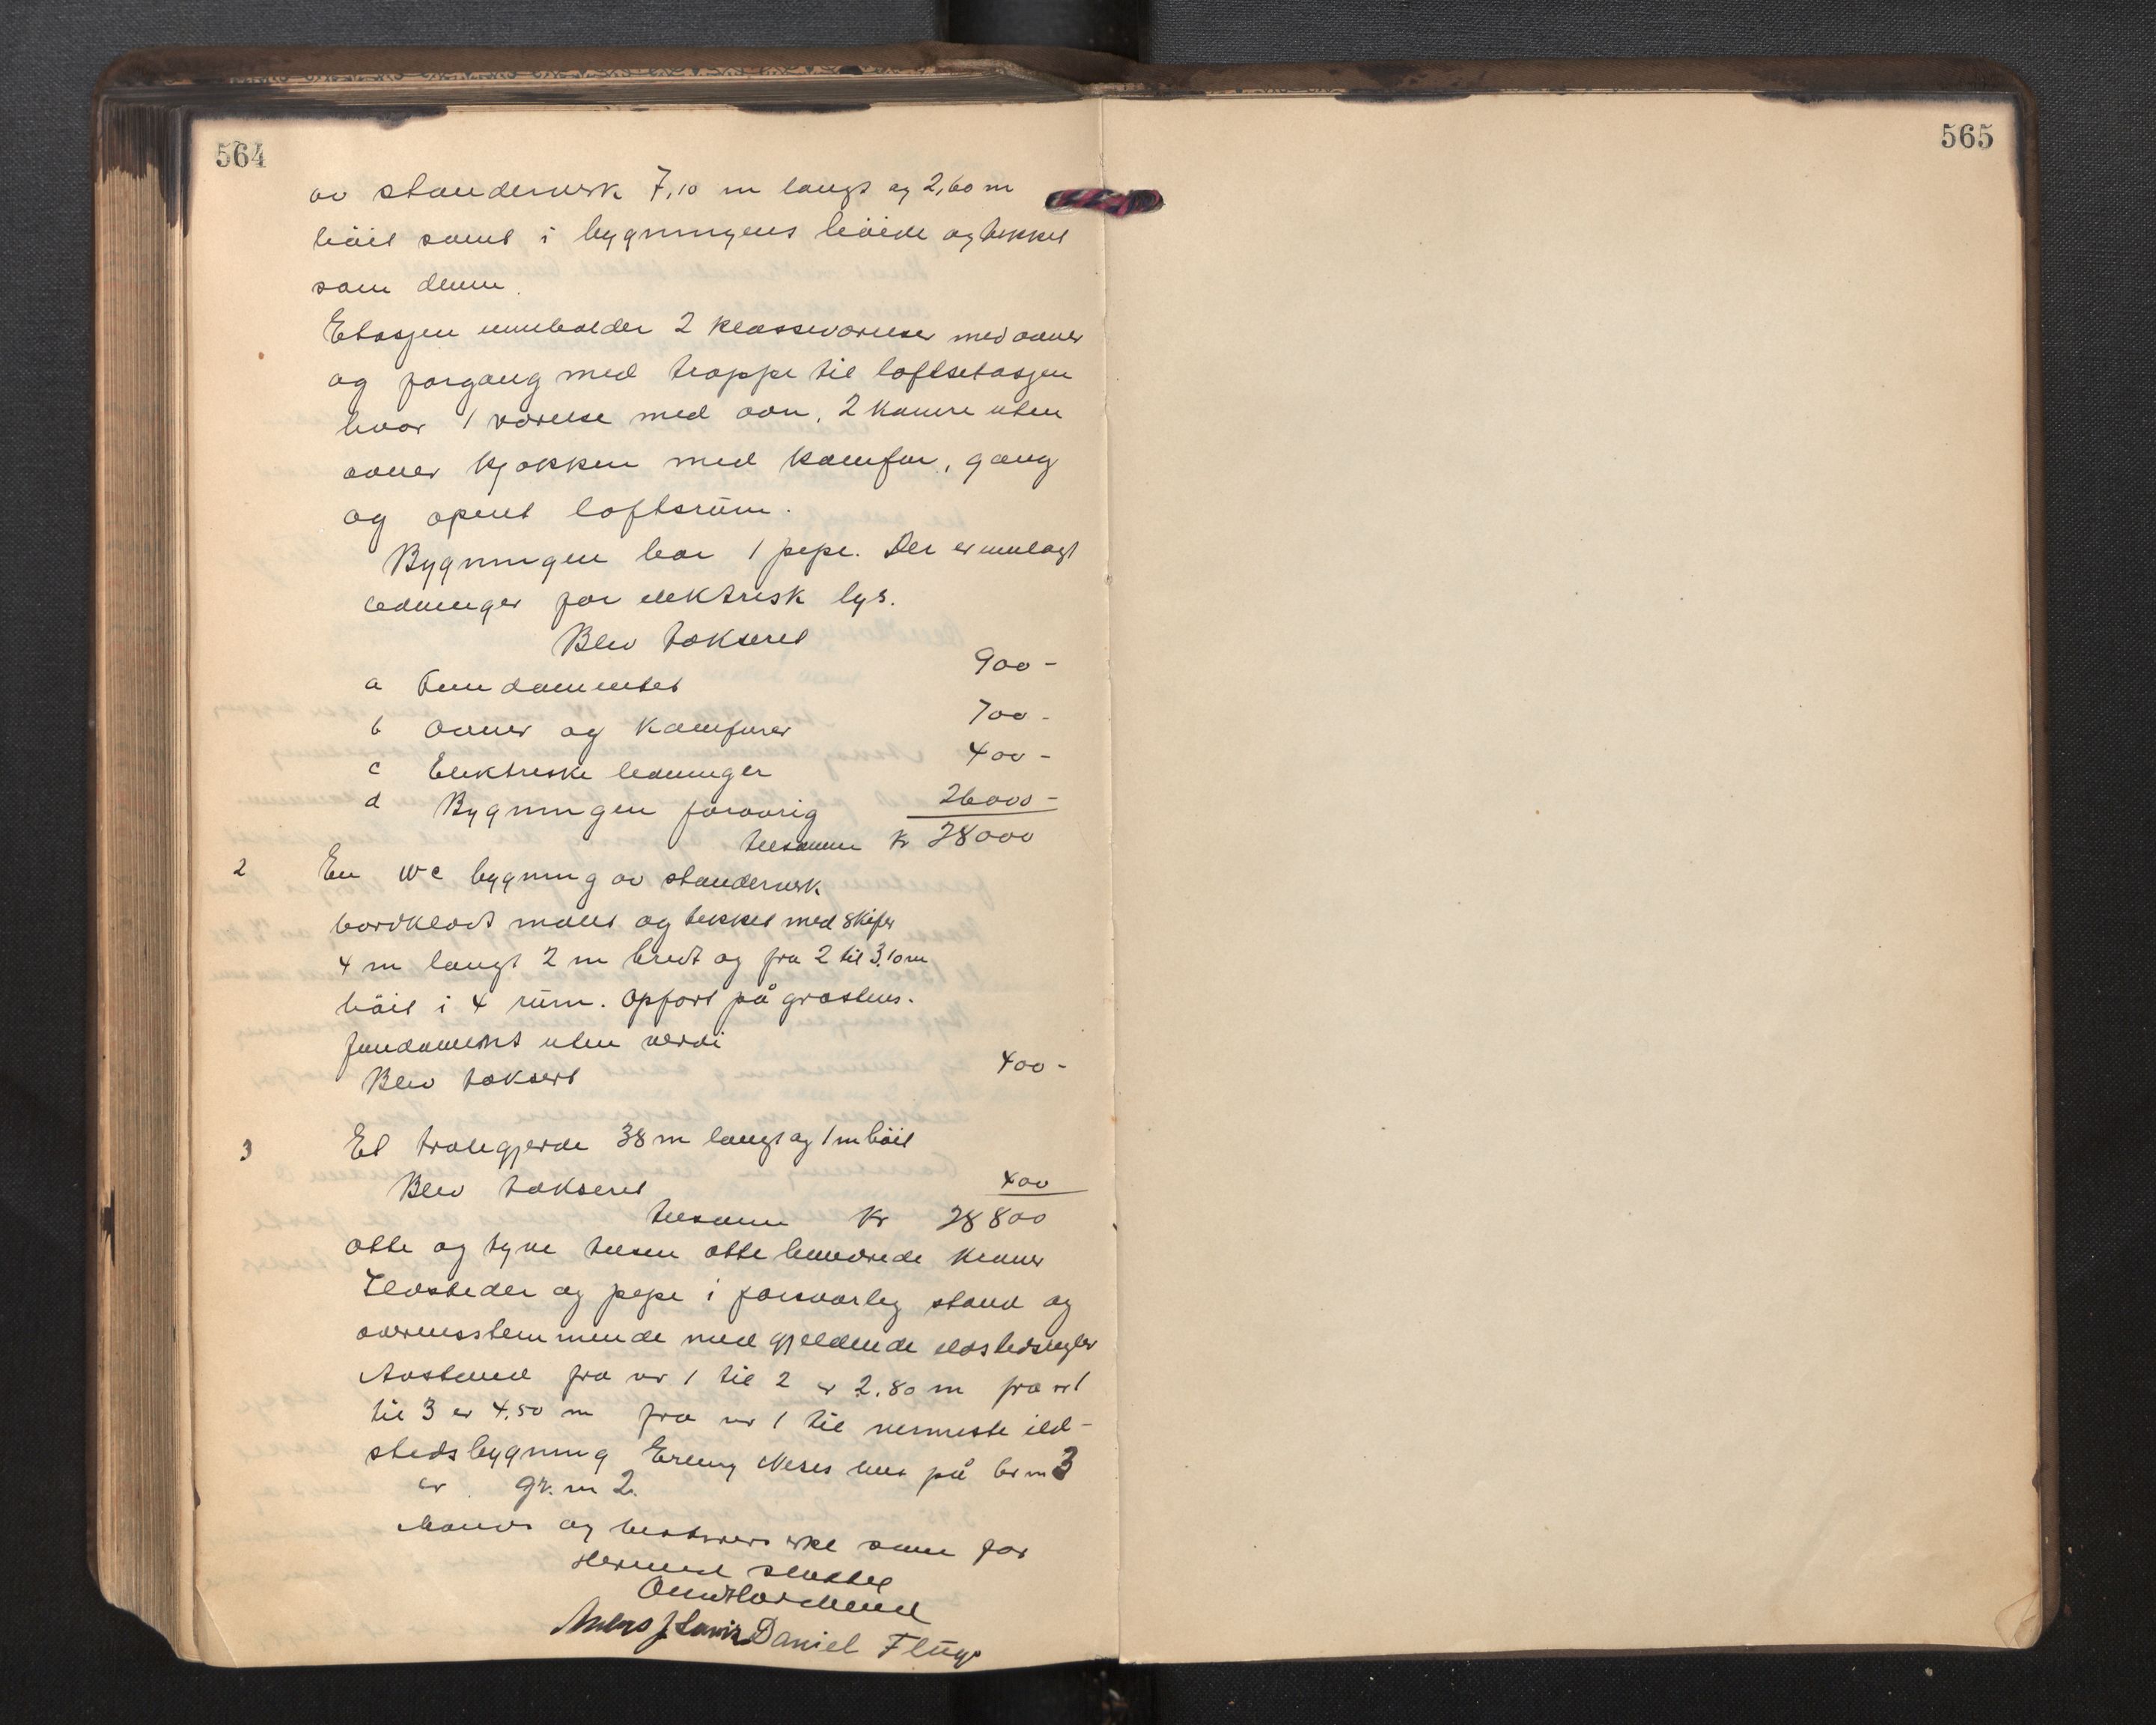 564
565
av standerverk 7,10 m langt og 2,60 m
höit samt i bygningens höide og tekket
som denne.
Etasjen inneholder 2 klasseværelser med ovner
og forgang med trappe til loftsetasjen
hvor 1 værelse med ovn, 2 kamre uten
ovner kjøkken med komfur, gang
og opent loftsrüm.
Bygningen har 1 pipe. Der er innlagt
ledninger for elektrisk lys.
Blev taksert
a Fundamentet 900 -
b Ovner og Komfurer 700 -
c Elektriske ledninger 400 -
d Bygningen forøvrig 26000 -
tilsamen Kr 28000
2 En WC bygning av standerverk
bordklædt malet og tekket med skifer
4 m langt 2 m bredt og fra 2 til 3.10 m
höit i 4 rüm. Opfort på gråstens-
fundament uten verdi
Blev taksert 400 -
3 Et trælegjerde 38 m langt og 1 m höit
Blev taksert 400
tilsamen Kr 28800
Otte og tyve tusen otte hundrede kroner
Ildsteder og pipe i forsvarlig stand og
overensstemmende med gjeldende ildstedsregler
Avstand fra nr 1 til 2 er 2.80 m fra nr 1
til 3 er 4,50 m fra nr 1 til nermeste ild-
stedsbygning Erling Neses hus på br nr 3
av gr. nr 2.
som for
Daniel Flüge